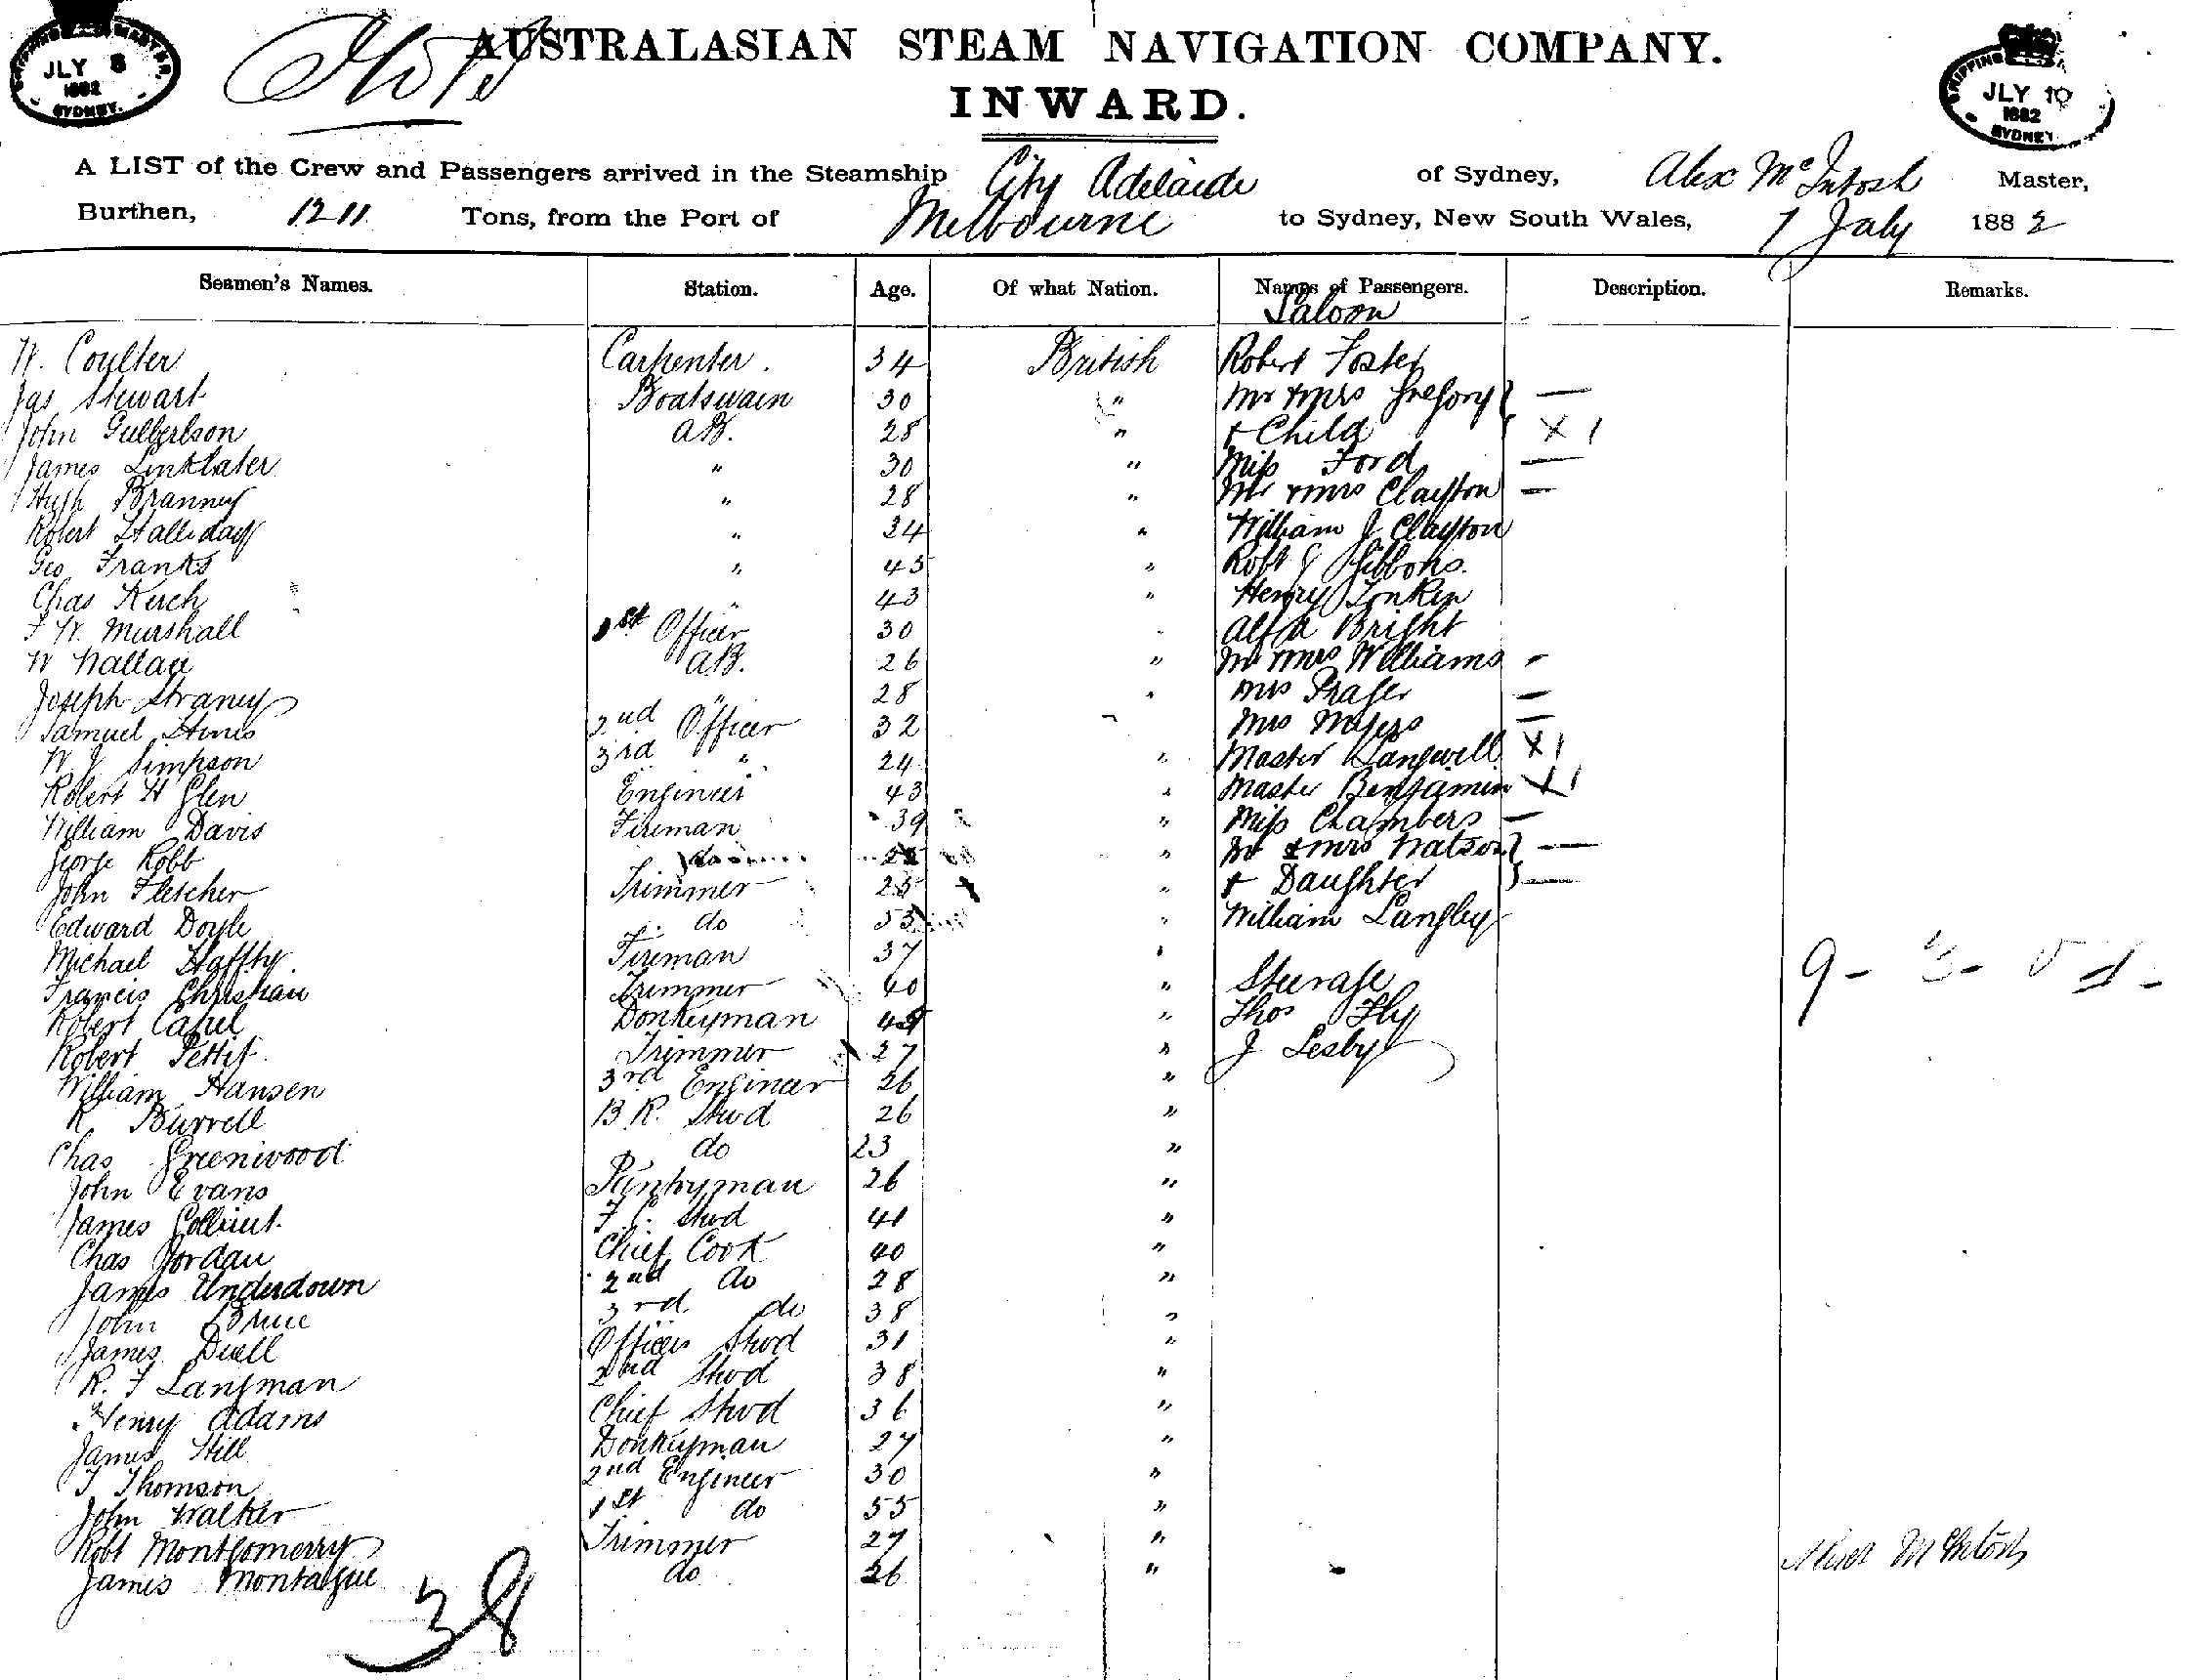 SHIPPING MASTER, JLY 8 1882 SYDNEY.
AUSTRALASIAN STEAM NAVIGATION COMPANY.
INWARD.
SHIPPING JLY 10 1882 SYDNEY.
A LIST of the Crew and Passengers arrived in the Steamship City Adelaide of Sydney, Alex McIntosh Master,
Burthen, 1211 Tons, from the Port of Melbourne to Sydney, New South Wales, 7 July 1882
Seamen's Names. Station. Age. Of what Nation. Names of Passengers. Description. Remarks.
Saloon
W. Coulter Carpenter. 34 British Robert Foster
Jas Stewart Boatswain 30 " Mr & Mrs Gregory } —
John Gulbertson AB. 28 " + Child { X 1
James Linklater " 30 " Miss Ford —
Hugh Branney " 28 " Mr & Mrs Clayton —
Robert Halliday " 34 " William J Clayton
Geo Franks " 45 " Robt J Gibbons.
Chas Kerch " 43 " Henry Tonkin
F W. Murshall 1st Officer 30 " Alf Bright
W Wallace AB. 26 " Mr & Mrs Williams -
Joseph Straney " 28 " Mrs Frager —
Samuel 2nd Officer 32 " Mrs Meyers —
W J Simpson 3rd " 24 " Master Langwill X 1
Robert H Glen Engineer 43 " Master Benjamin X 1
William Davis Fireman 39 " Miss Chambers —
George Robb do " Mr & Mrs Watson } —
John Fletcher Trimmer 25 " + Daughter } —
Edward Doyle do 53 " William Langley
Michael Haffty. Fireman 37 "
Francis Christian Trimmer 40 " Steerage
Robert Donkeyman " Thos Fly
Robert Pettit. Trimmer 27 " J Lesby
William Hansen 3rd Engineer 26 "
R Burrell B. R. Stwd 26 "
Chas Greenwood do 23 "
John Evans Pantryman 26 "
James F. C. Stwd 41 "
Chas Jordan Chief Cook 40 "
James Underdown 2nd do 28 "
John Bruce 3rd. do 38 "
James Duell Officers Stwd 31 "
R. F Langman 2nd Stwd 38 "
Henry Adams Chief Stwd 36 "
James Hill Donkeyman 27 "
T Thomson 2nd Engineer 30 "
John Walker 1st do 55 "
Robt Montgomerry Trimmer 27 " McIntosh
James Montague do 26 "
38